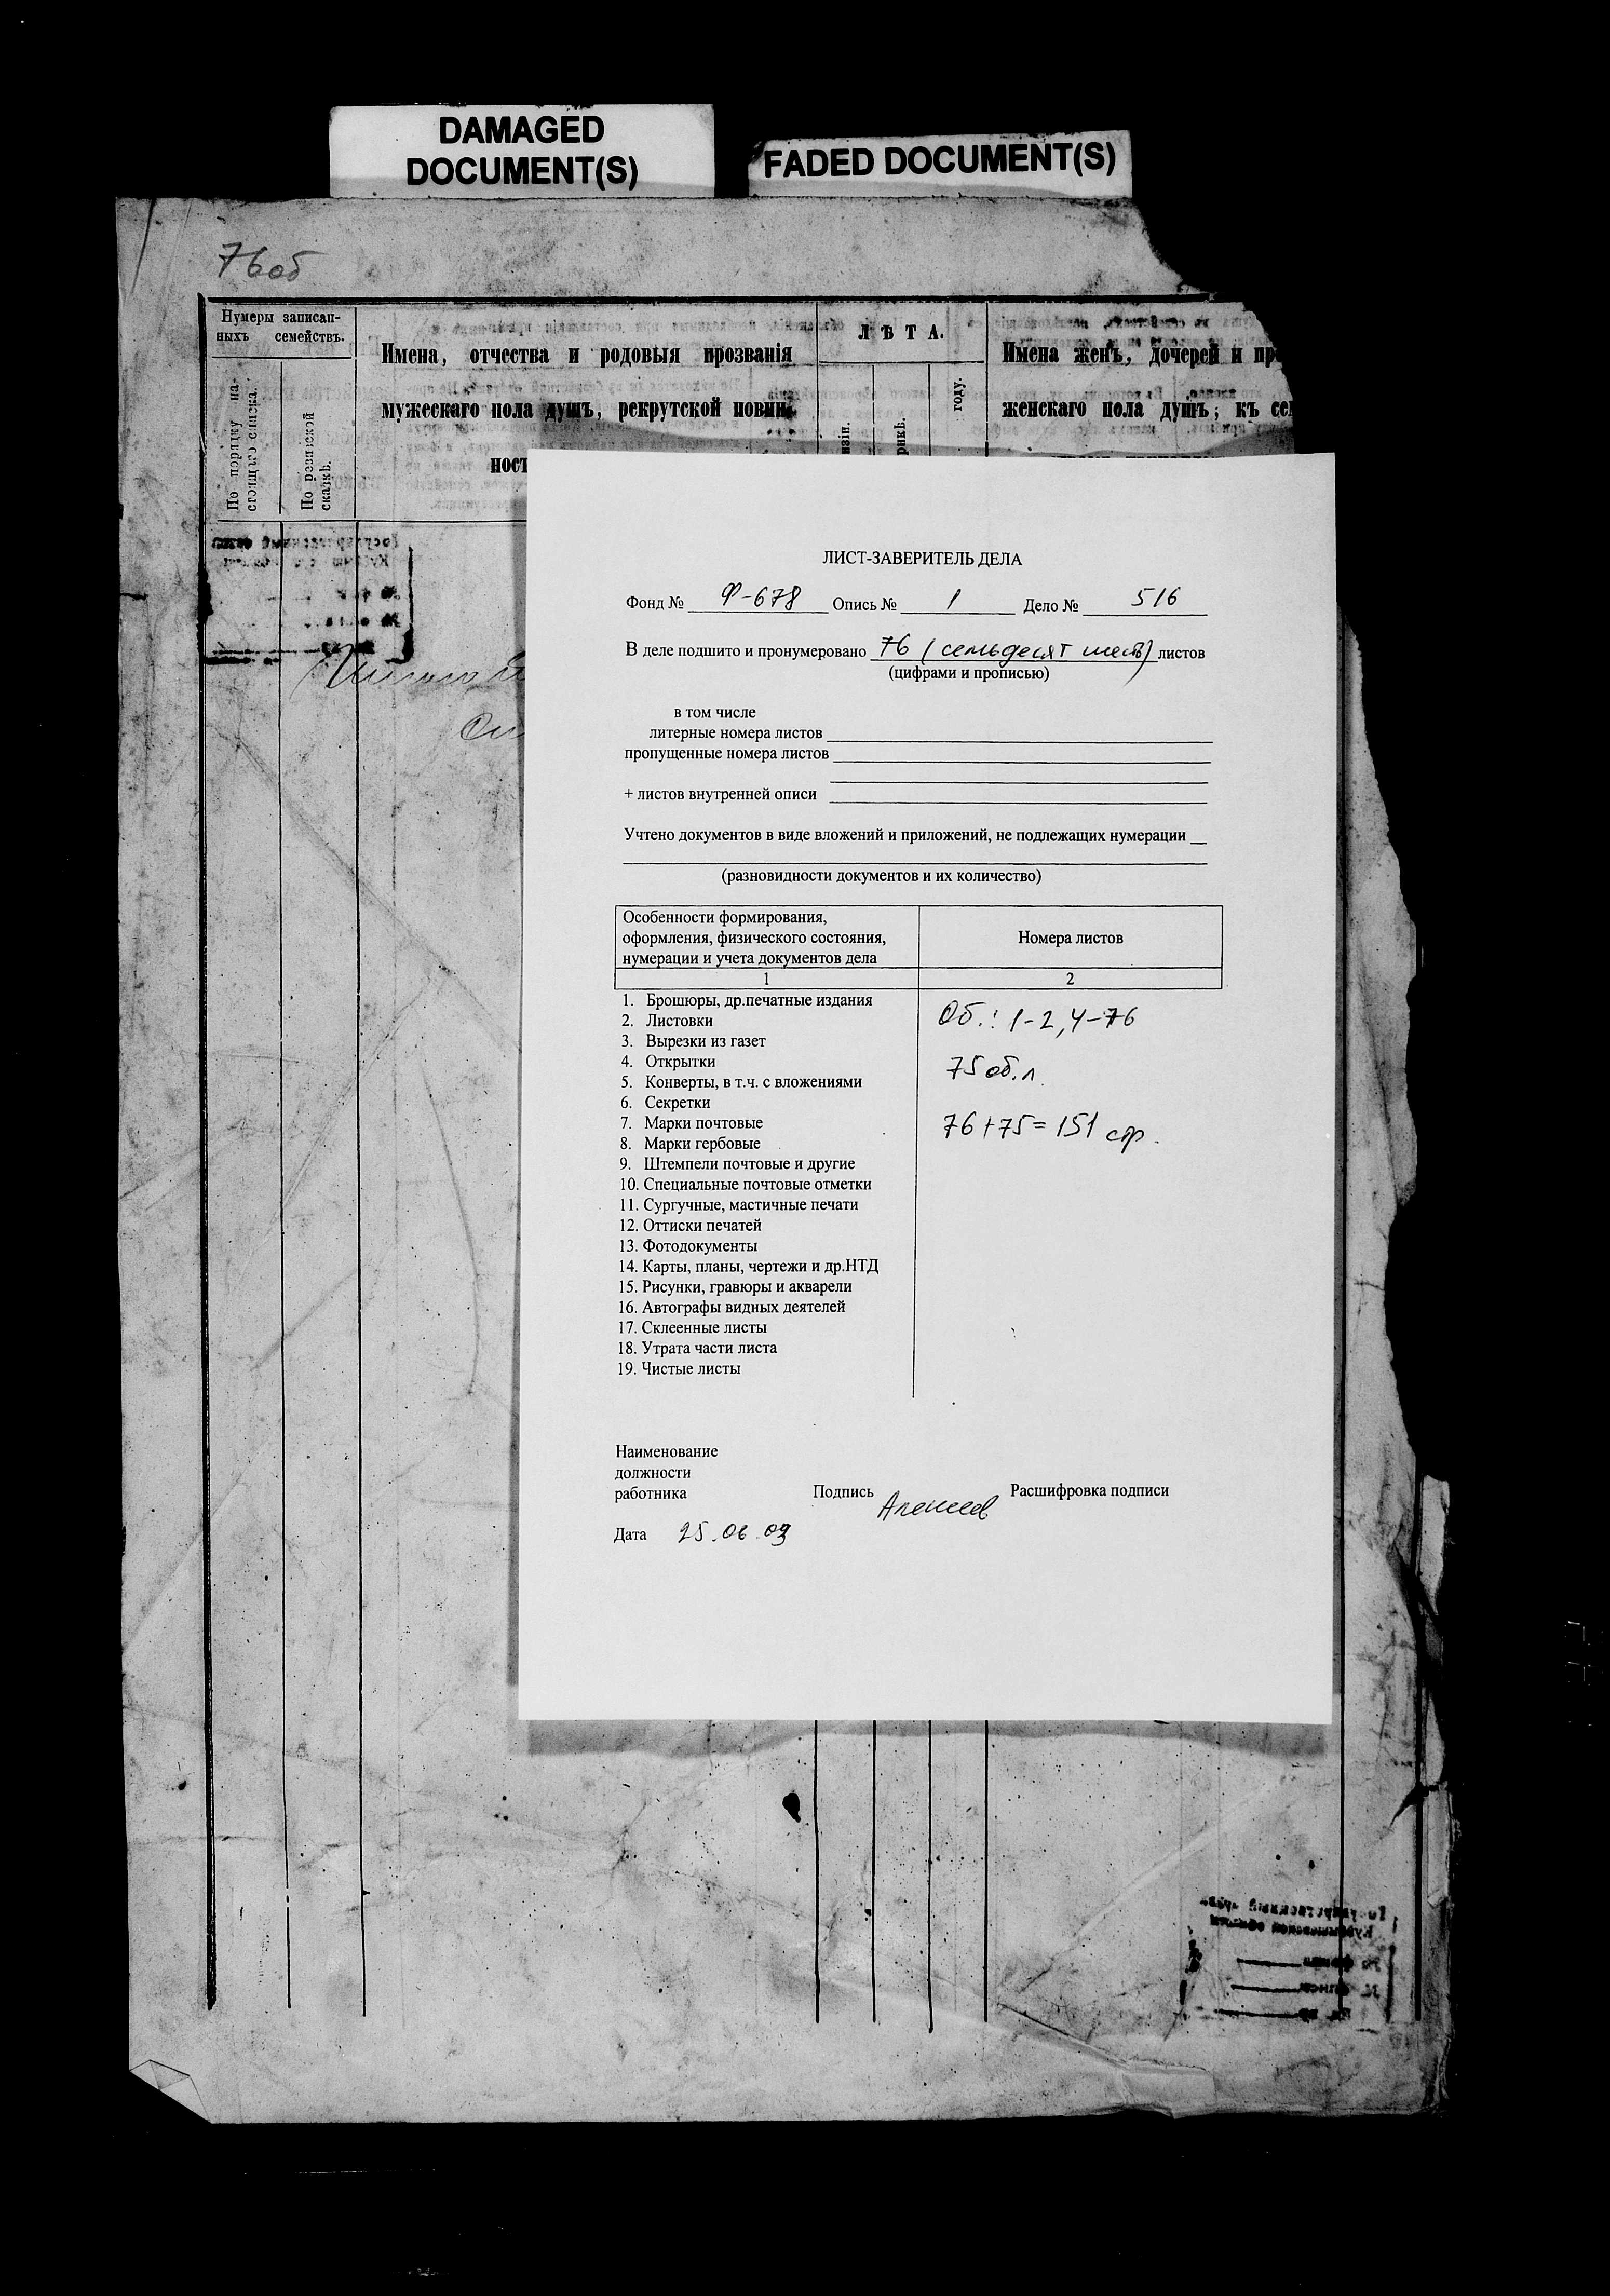 DAMAGED
DOCUMENT(S)
FADED DOCUMENT(S)
76об
Нумеры записан-
ныхъ семействъ.
По порядку на-
стоящаго списка.
По ревизской
сказкѣ.
Имена, отчества и родовыя прозванія
мужескаго пола душъ, рекрутской повин-
ност
ЛѢТА.
году.
Имена женъ, дочерей и пр
женскаго пола душъ; къ се
ЛИСТ-ЗАВЕРИТЕЛЬ ДЕЛА
Фонд № Ф-678 Опись № 1 Дело № 516
В деле подшито и пронумеровано 76 (семьдесят шесть) листов
(цифрами и прописью)
в том числе
литерные номера листов
пропущенные номера листов
+ листов внутренней описи
Учтено документов в виде вложений и приложений, не подлежащих нумерации
(разновидности документов и их количество)
Особенности формирования,
оформления, физического состояния,
нумерации и учета документов дела
Номера листов
1 2
1. Брошюры, др.печатные издания
2. Листовки
3. Вырезки из газет
4. Открытки
5. Конверты, в т.ч. с вложениями
6. Секретки
7. Марки почтовые
8. Марки гербовые
9. Штемпели почтовые и другие
10. Специальные почтовые отметки
11. Сургучные, мастичные печати
12. Оттиски печатей
13. Фотодокументы
14. Карты, планы, чертежи и др.НТД
15. Рисунки, гравюры и акварели
16. Автографы видных деятелей
17. Склеенные листы
18. Утрата части листа
19. Чистые листы
Об.: 1-2, 4-76
75 об.л.
76+75=151 стр.
Наименование
должности
работника
Подпись
Расшифровка подписи
Дата 25.06.09